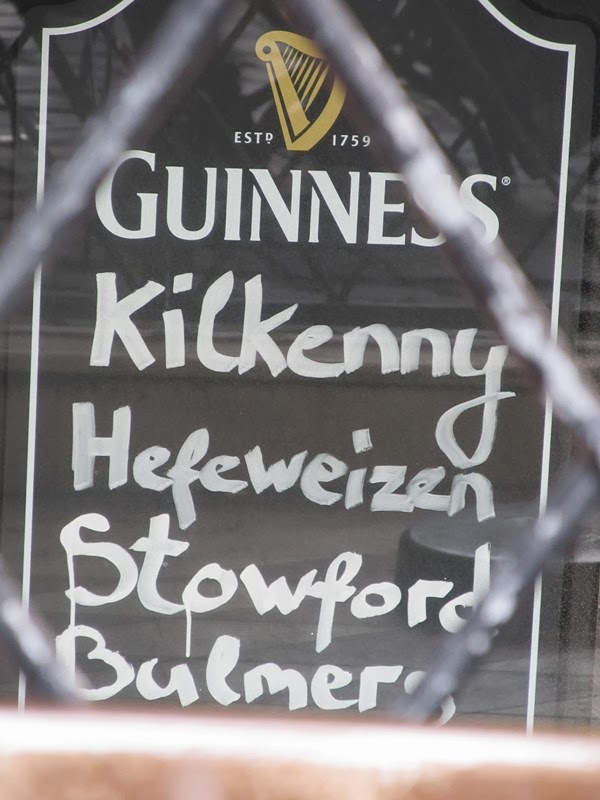 ESTD 1759
GUINNESS®
Kilkenny
Hefeweizen
Stowford
Bulmers